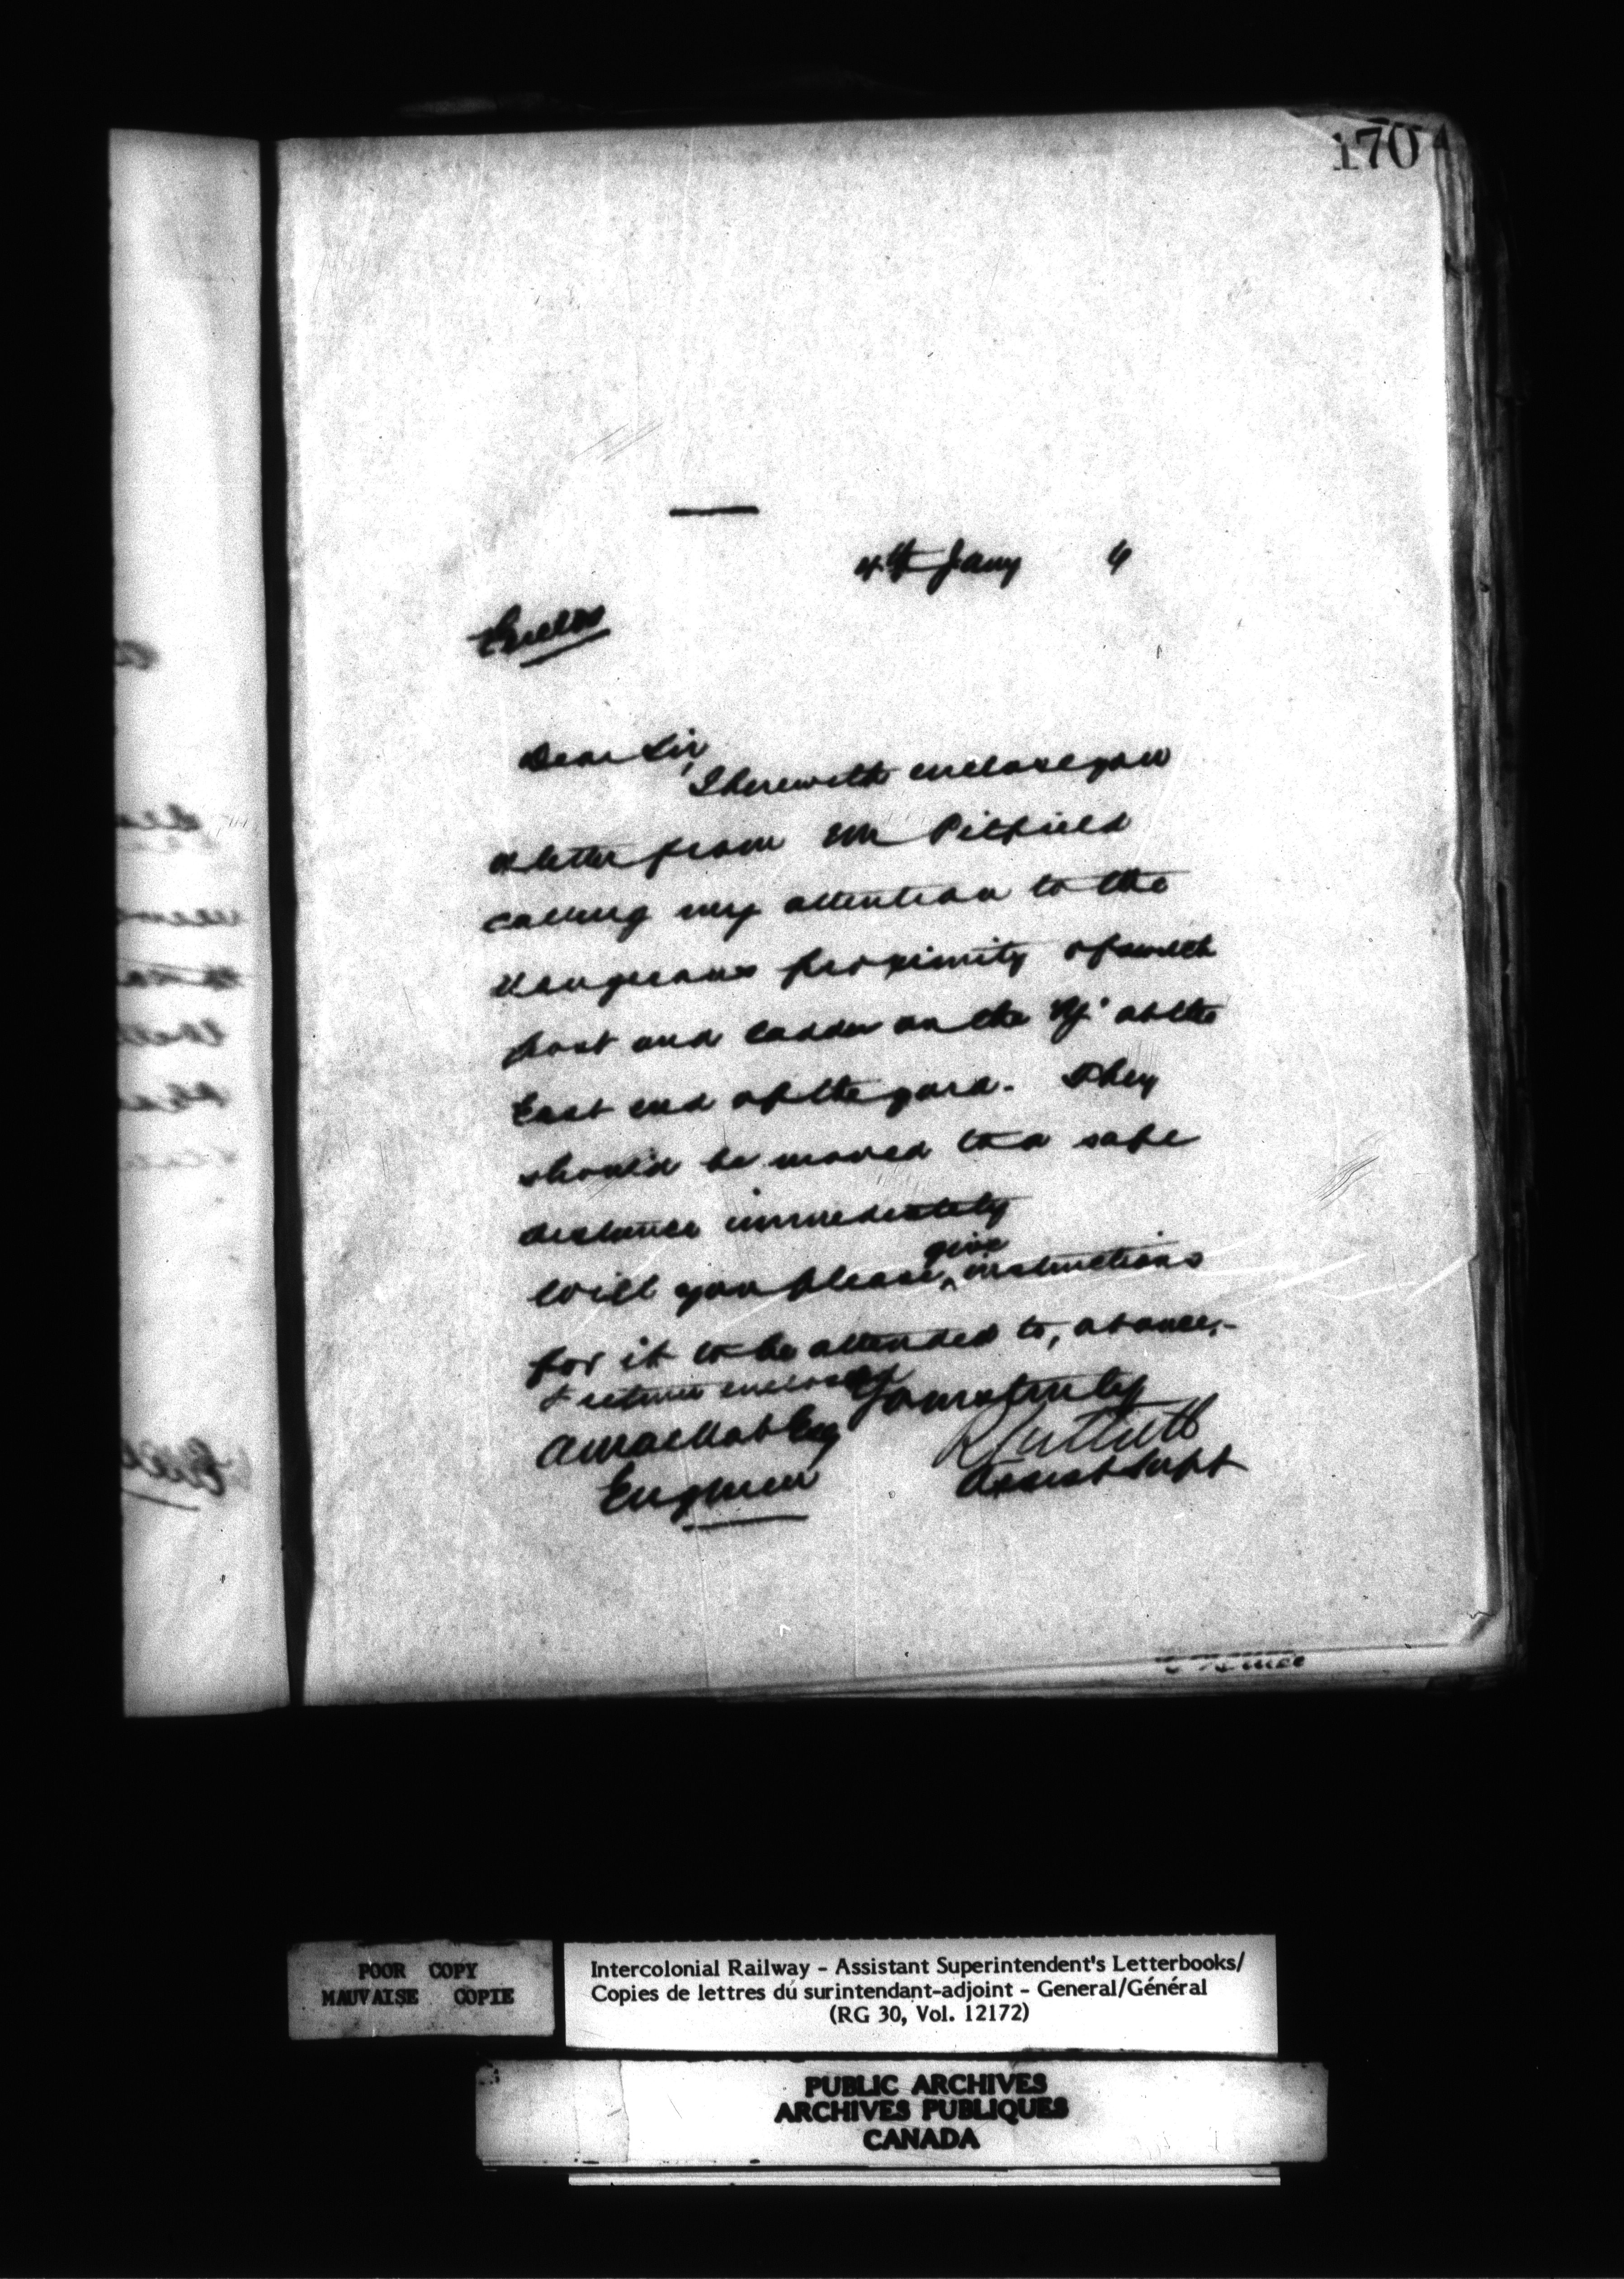 170
4th Jany 6
Enclos
Dear Sir,
I herewith enclose you
a letter from Mr Pitfield
calling my attention to the
dangerous proximity of switch
post and ladder on the 'Y' at the
East end of the yard. They
should be moved to a safe
distance immediately
Will you please give instructions
for it to be attended to, at once,-
& return enclosed
Yours truly
A MacNab Esq
Engineer
Assist Supt
POOR COPY
MAUVAISE COPIE
Intercolonial Railway - Assistant Superintendent's Letterbooks/
Copies de lettres du surintendant-adjoint - General/Général
(RG 30, Vol. 12172)
PUBLIC ARCHIVES
ARCHIVES PUBLIQUES
CANADA